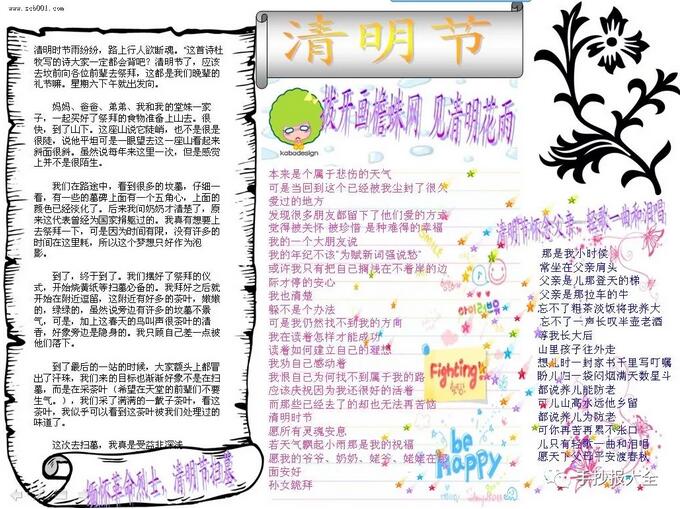 www.zcb001.com
清明时节雨纷纷，路上行人欲断魂。"这首诗杜
牧写的诗大家一定都会背吧？清明节了，应该
去坟前向各位前辈去祭拜，这都是我们晚辈的
礼节嘛。星期六下午就出发向。
妈妈、爸爸、弟弟、我和我的堂妹一家
子，一起买好了祭拜的食物准备上山去。很
快，到了山下。这座山说它陡峭，也不是很是
很陡，说他平坦可是一眼望去这一座山看起来
斜面很斜。虽然说每年来这里一次，但是感觉
上并不是很陌生。
我们在路途中，看到很多的坟墓，仔细一
看，有一些的墓碑上面有一个五角心，上面的
颜色已经淡化了。后来我问奶奶才清楚了，原
来这代表曾经为国家捐躯过的。我真有想要上
去祭拜一下，可是因为时间有限，没有许多的
时间在这里耗，所以这个梦想只好作为泡
影。
到了，终于到了。我们摆好了祭拜的仪
式，开始烧黄纸等扫墓必备的。我拜好之后就
开始在附近逗留，这附近有好多的茶叶，嫩嫩
的，绿绿的，虽然说旁边有许多的坟墓不景
气，可是，加上这春天的鸟叫声很茶叶的清
香，好象旁边是隐身的。我只顾自己差一点被
他们落下。
到了最后的一站的时候，大家额头上都冒
出了汗珠，我们来的目标也渐渐好象不是在扫
墓，而是在采茶叶（希望在天堂的前辈们不要
生气。），我们采了满满的一氅子茶叶，看这
茶叶，我似乎可以看到这茶叶被我们处理过的
味道了。
这次去扫墓，我真是受益非深浅
缅怀革命烈士、清明节扫墓
清明节
kabodesign
拨开画檐蛛网 见清明花雨
本来是个属于悲伤的天气
可是当回到这个已经被我尘封了很久
爱过的地方
发现很多朋友都留下了他们爱的方式
觉得被关怀 被珍惜 是种难得的幸福
我的一个大朋友说
我的年纪不该"为赋新词强说愁"
或许我只有把自己搁浅在不着岸的边
际才停的安心
我也清楚
躲不是个办法
可是我仍然找不到我的方向
我在读着怎样才能成功
读着如何建立自己的理想
我劝自己感动着
我恨自己为何找不到属于我的路
应该庆祝因为我还很好的活着
而那些已经去了的却也无法再苦恼
清明时节
愿所有灵魂安息
若天气飘起小雨那是我的祝福
愿我的爷爷、奶奶、姥爷、姥姥在那
面安好
孙女跳拜
Fighting
be
Happy
清明节怀念父亲、轻歌一曲和泪唱
那是我小时侯
常坐在父亲肩头
父亲是儿那登天的梯
父亲是那拉车的牛
忘不了粗茶淡饭将我养大
忘不了一声长叹半壶老酒
等我长大后
山里孩子往外走
想儿时一封家书千里写叮嘱
盼儿归一袋闷烟满天数星斗
都说养儿能防老
可儿山高水远他乡留
都说养儿为防老
可你再苦再累不张口
儿只有轻歌一曲和泪唱
愿天下父母平安渡春秋
手抄报大全